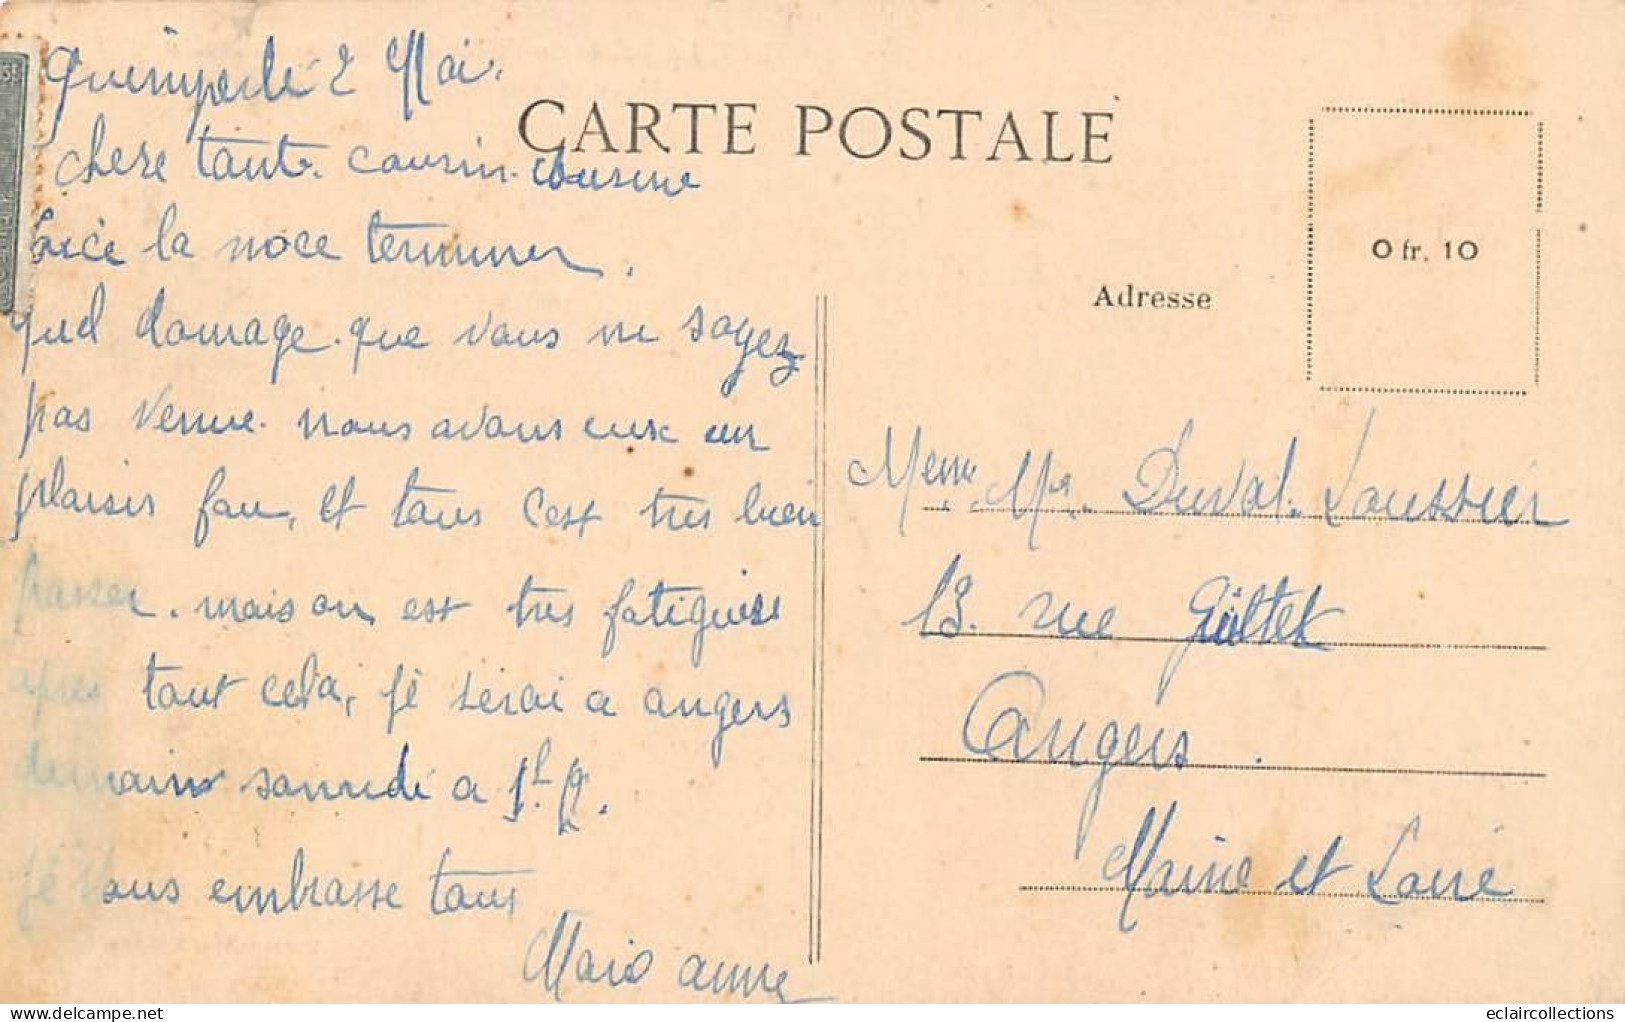 Quimperlé 2 Mai.
CARTE POSTALE
chere tante. cousin. cousine
Voici la noce terminer.
quel domage. que vous ne soyez
pas venue. nous avons eux un
plaisir fou, et tous c'est tres bien
passer. mais on est tres fatigues
apres tout cela, je serai a angers
demain samedi a 1h
je vous embrasse tous
Marie anne
0 fr. 10
Adresse
Mr. Duval. Loussier
13. rue
Angers.
Maine et Loire
eclaircollections